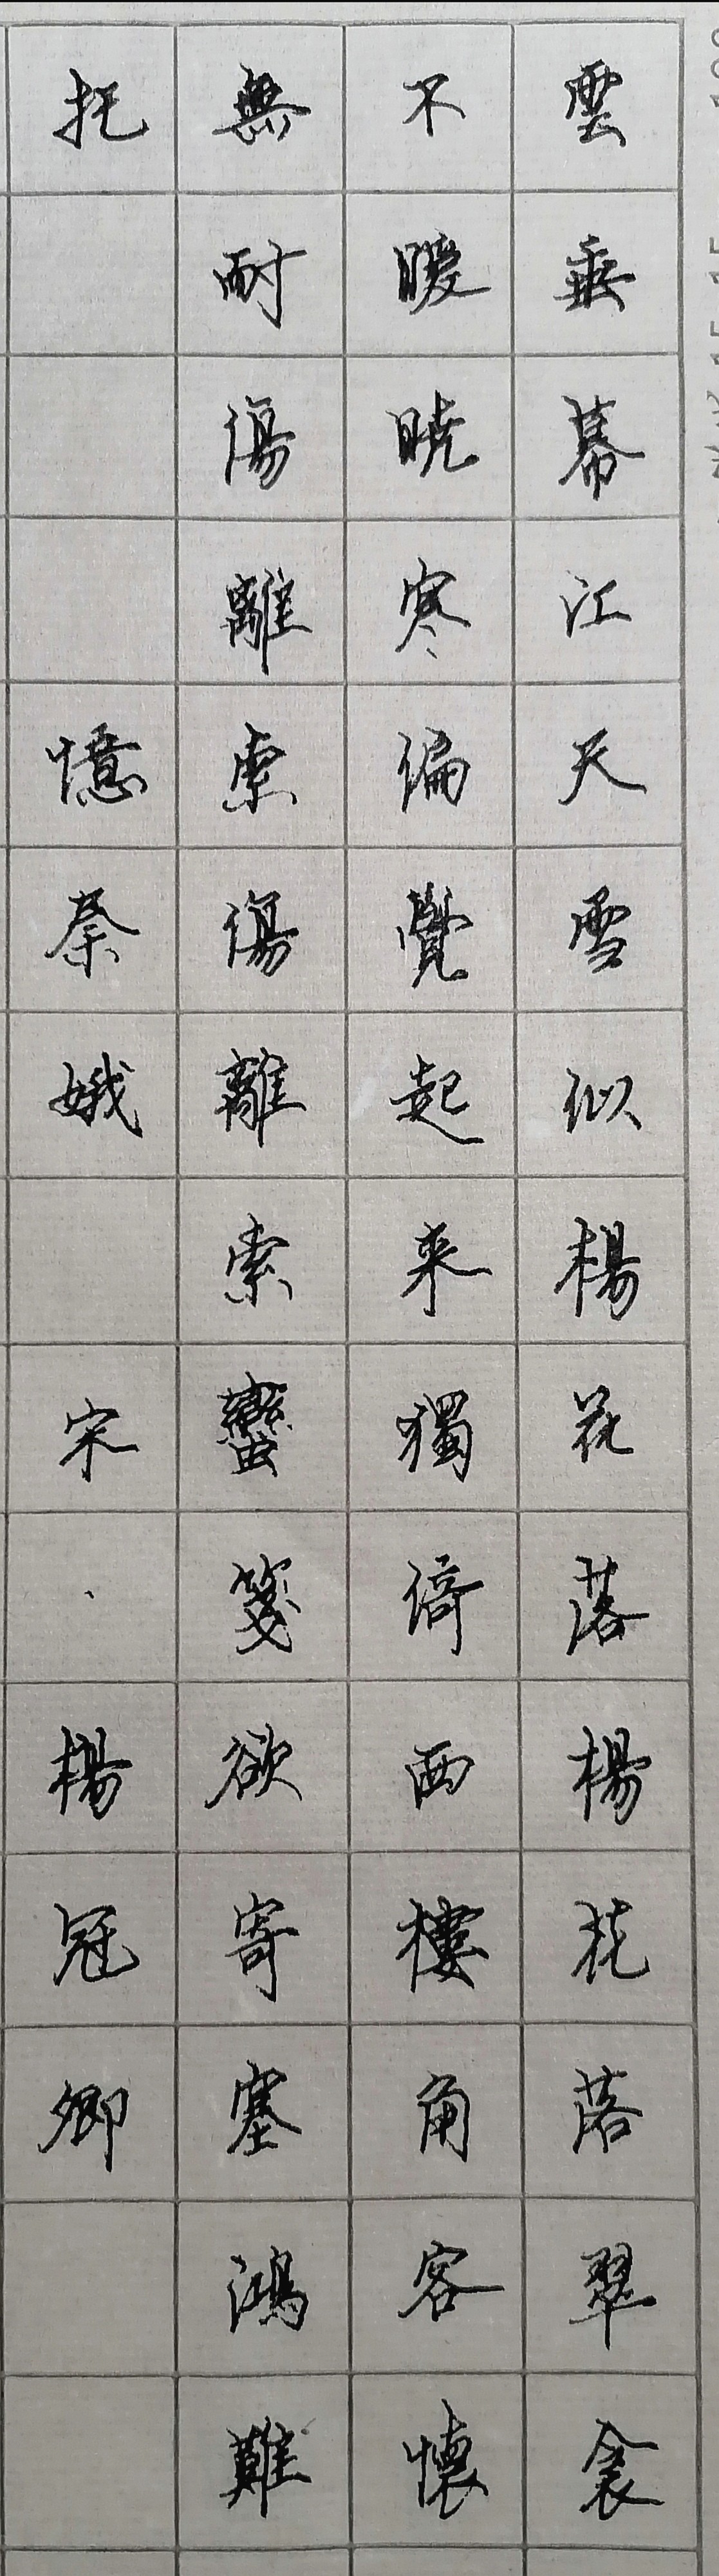 雲垂幕江天雪似楊花落楊花落翠衾
不暖曉寒偏覺起来獨倚西樓角客懷
無耐傷離索傷離索蠻箋欲寄塞鴻難
托 憶秦娥 宋·楊冠卿